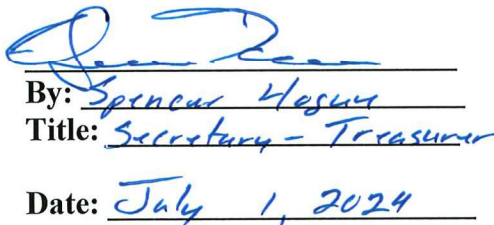 By: Spencer Hogue
Title: Secretary - Treasurer
Date: July 1, 2024